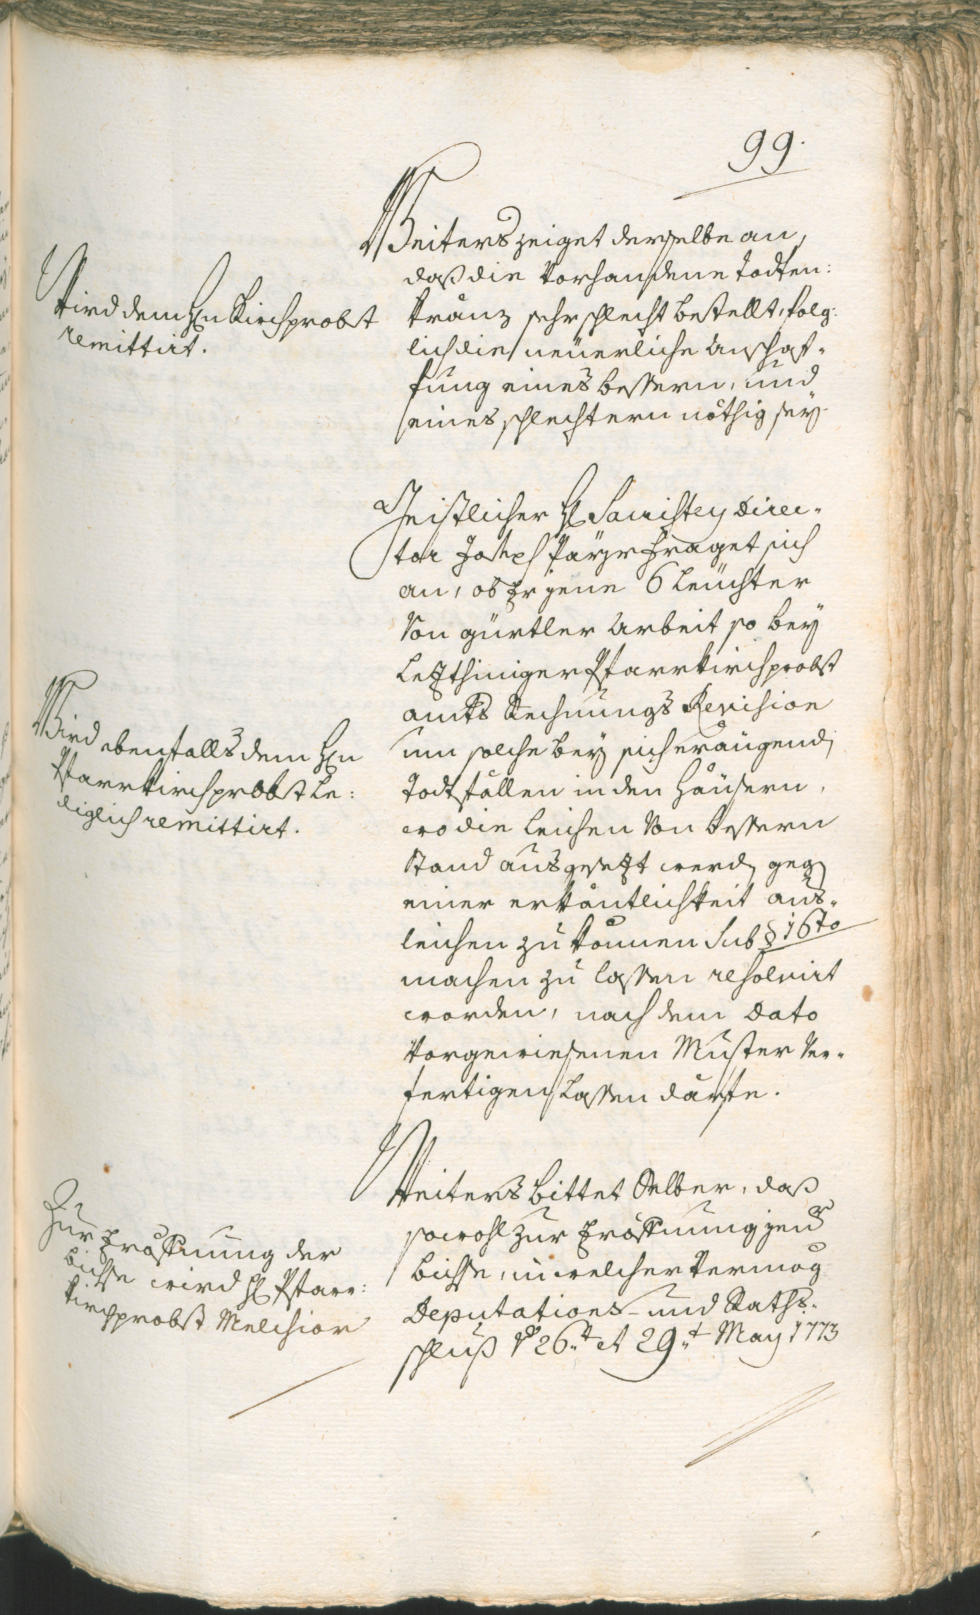 99.
Weiters zeiget derselbe an,
daß die vorhandene Todten:
kränz sehr schlecht bestellt, folg:
lich die neüerliche Anschaf-
fung eines bessern, und
eines schlechtern nöthig seÿ.
Wird dem Hn Kirchprobst
remittirt.
Geistlicher H. Sacristeÿ Direc-
tor Joseph fraget sich
an, ob Er jene 6 Leüchter
von gürtler Arbeit so beÿ
letzthiniger Pfarrkirchprobst
amts Rechnungs Revision
um solche beÿ sich eraügend
Todtfällen in den Häüsern,
wo die Leichen von bessern
Stand ausgesetzt werd geg
einer erkäntlichkeit aus-
leichen zu können sub § 16to
machen zu lassen resolvirt
worden, nach dem dato
vorgewiesenen Muster ver-
fertigen lassen därfte.
Wird ebenfalls dem Hn
Pfarrkirchprobst le:
diglich remittirt.
Weiters bittet Selber, daß
sowohl zur Eröffnung jener
büchse, in welcher vermög
Deputations- und Raths-
schluß de 26t et 29t May 1773
Zur Eröffnung der
büchse wird H Pfarr:
kirchprobst Melchior